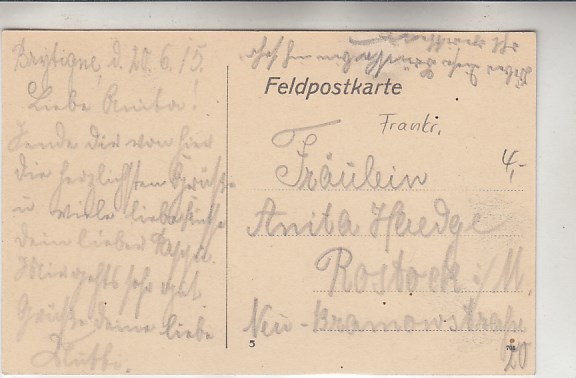 Brétigny, d. 20.6.15.
Liebe Anita!
Sende dir von hier
die herzlichsten Grüße
u viele liebe Küsse
dein lieber Pappi.
Mir gehts sehr gut
Grüße deine liebe
Mutti.
Feldpostkarte
Frankr.
4,-
Fräulein
Anita Haedge
Rostock i/M.
Neu-Bramowstraße
20
5